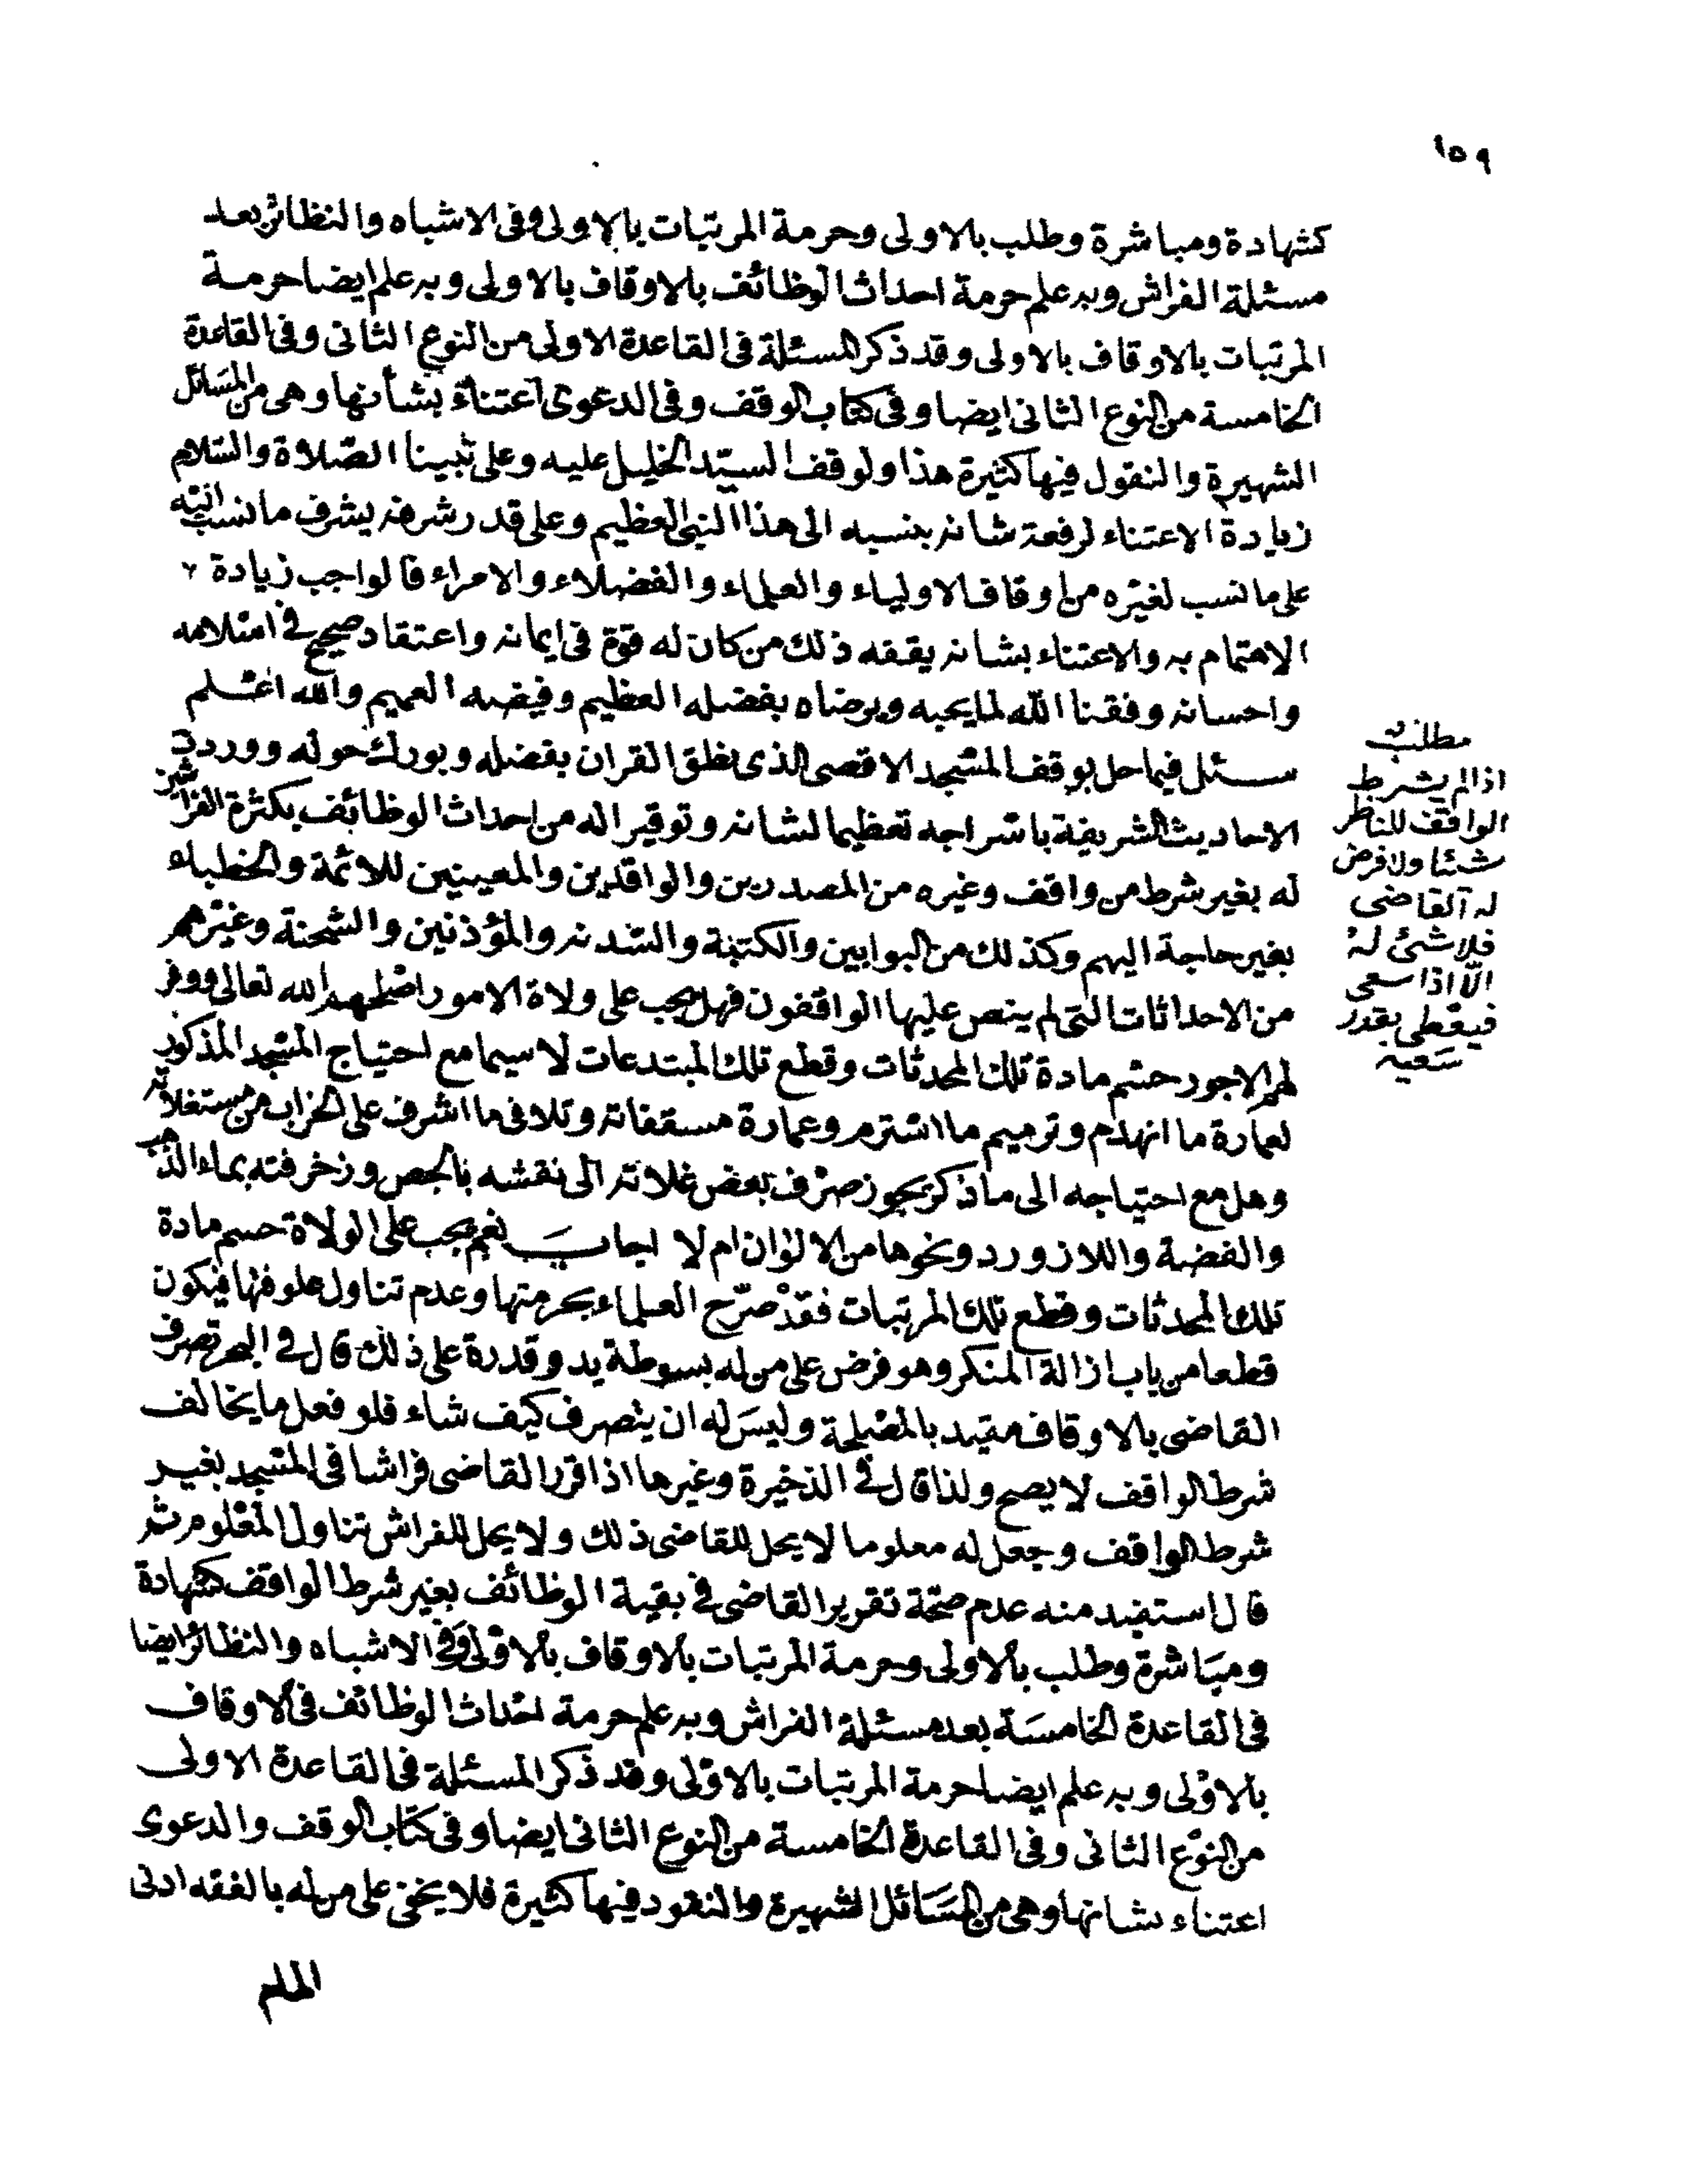 ١٥٩
كشهادة ومباشرة وطلب بالاولى وحرمة المرتبات بالاولى وفى الاشباه والنظائر بعد
مسئلة الفراش وبه علم حرمة احداث الوظائف بالاوقاف بالاولى وبه علم ايضا حرمة
المرتبات بالاوقاف بالاولى وقد ذكر المسئلة فى القاعدة الاولى من النوع الثانى وفى القاعدة
الخامسة من النوع الثانى ايضا وفى كتاب الوقف وفى الدعوى اعتناء بشأنها وهى من المسائل
الشهيرة والنقول فيها كثيرة هذا ولوقف السيد الخليل عليه وعلى نبينا الصلاة والسلام
زيادة الاعتناء لرفعة شانه بنسبه الى هذا النبى العظيم وعلى قدر شرفه يشرف ما نسب اليه
على ما نسب لغيره من اوقاف الاولياء والعلماء والفضلاء والامراء فالواجب زيادة
الاهتمام به والاعتناء بشانه يقفه ذلك من كان له قوة فى ايمانه واعتقاد صحيح فى اسلامه
واحسانه وفقنا الله لما يحبه ويرضاه بفضله العظيم وفيضه العميم والله اعلم
سئل فيما حل بوقف المسجد الاقصى الذى نطق القران بفضله وبورك حوله ووردت
الاحاديث الشريفة باسراجه تعظيما لشانه وتوقيرا له من احداث الوظائف بكثرة الفراشين
له بغير شرط من واقف وغيره من المصدرين والواقدين والمعينين للائمة والخطباء
بغير حاجة اليهم وكذلك من البوابين والكتبة والسدنه والمؤذنين والشحنة وغيرهم
من الاحداثات التى لم ينص عليها الواقفون فهل يجب على ولاة الامور اصلحهم الله تعالى ووفر
لهم الاجور حسم مادة تلك المحدثات وقطع تلك المبتدعات لا سيما مع احتياج المسجد المذكور
لعمارة ما انهدم وترميم ما استرم وعمارة مسقفاته وتلافى ما اشرف على الخراب من مستغلاته
وهل مع احتياجه الى ما ذكر يجوز صرف بعض غلاته الى نقشه بالجص وزخرفته بماء الذهب
والفضة واللازورد ونحوها من الالوان ام لا اجاب نعم يجب على الولاة حسم مادة
تلك المحدثات وقطع تلك المرتبات فقد صرح العلماء بحرمتها وعدم تناول علوفها فيكون
قطعا من باب ازالة المنكر وهو فرض على من له بسوطة يد وقدرة على ذلك قال فى البحر تصرف
القاضى بالاوقاف مقيد بالمصلحة وليس له ان يتصرف كيف شاء فلو فعل ما يخالف
شرط الواقف لا يصح ولذا قال فى الذخيرة وغيرها اذا قرر القاضى فراشا فى المسجد بغير
شرط الواقف وجعل له معلوما لا يحل للقاضى ذلك ولا يحل للفراش تناول المعلوم ثم
قال استفيد منه عدم صحة تقرير القاضى فى بقية الوظائف بغير شرط الواقف كشهادة
ومباشرة وطلب بالاولى وحرمة المرتبات بالاوقاف بالاولى وفى الاشباه والنظائر ايضا
فى القاعدة الخامسة بعد مسئلة الفراش وبه علم حرمة احداث الوظائف فى الاوقاف
بالاولى وبه علم ايضا حرمة المرتبات بالاولى وقد ذكر المسئلة فى القاعدة الاولى
من النوع الثانى وفى القاعدة الخامسة من النوع الثانى ايضا وفى كتاب الوقف والدعوى
اعتناء بشانها وهى من المسائل الشهيرة والنقود فيها كثيرة فلا يخفى على من له بالفقه ادنى
المام
مطلب
اذا لم يشرط
الواقف للناظر
شئا ولا فرض
له القاضى
فلا شئ له
الا اذا سعى
فيعطى بقدر
سعيه